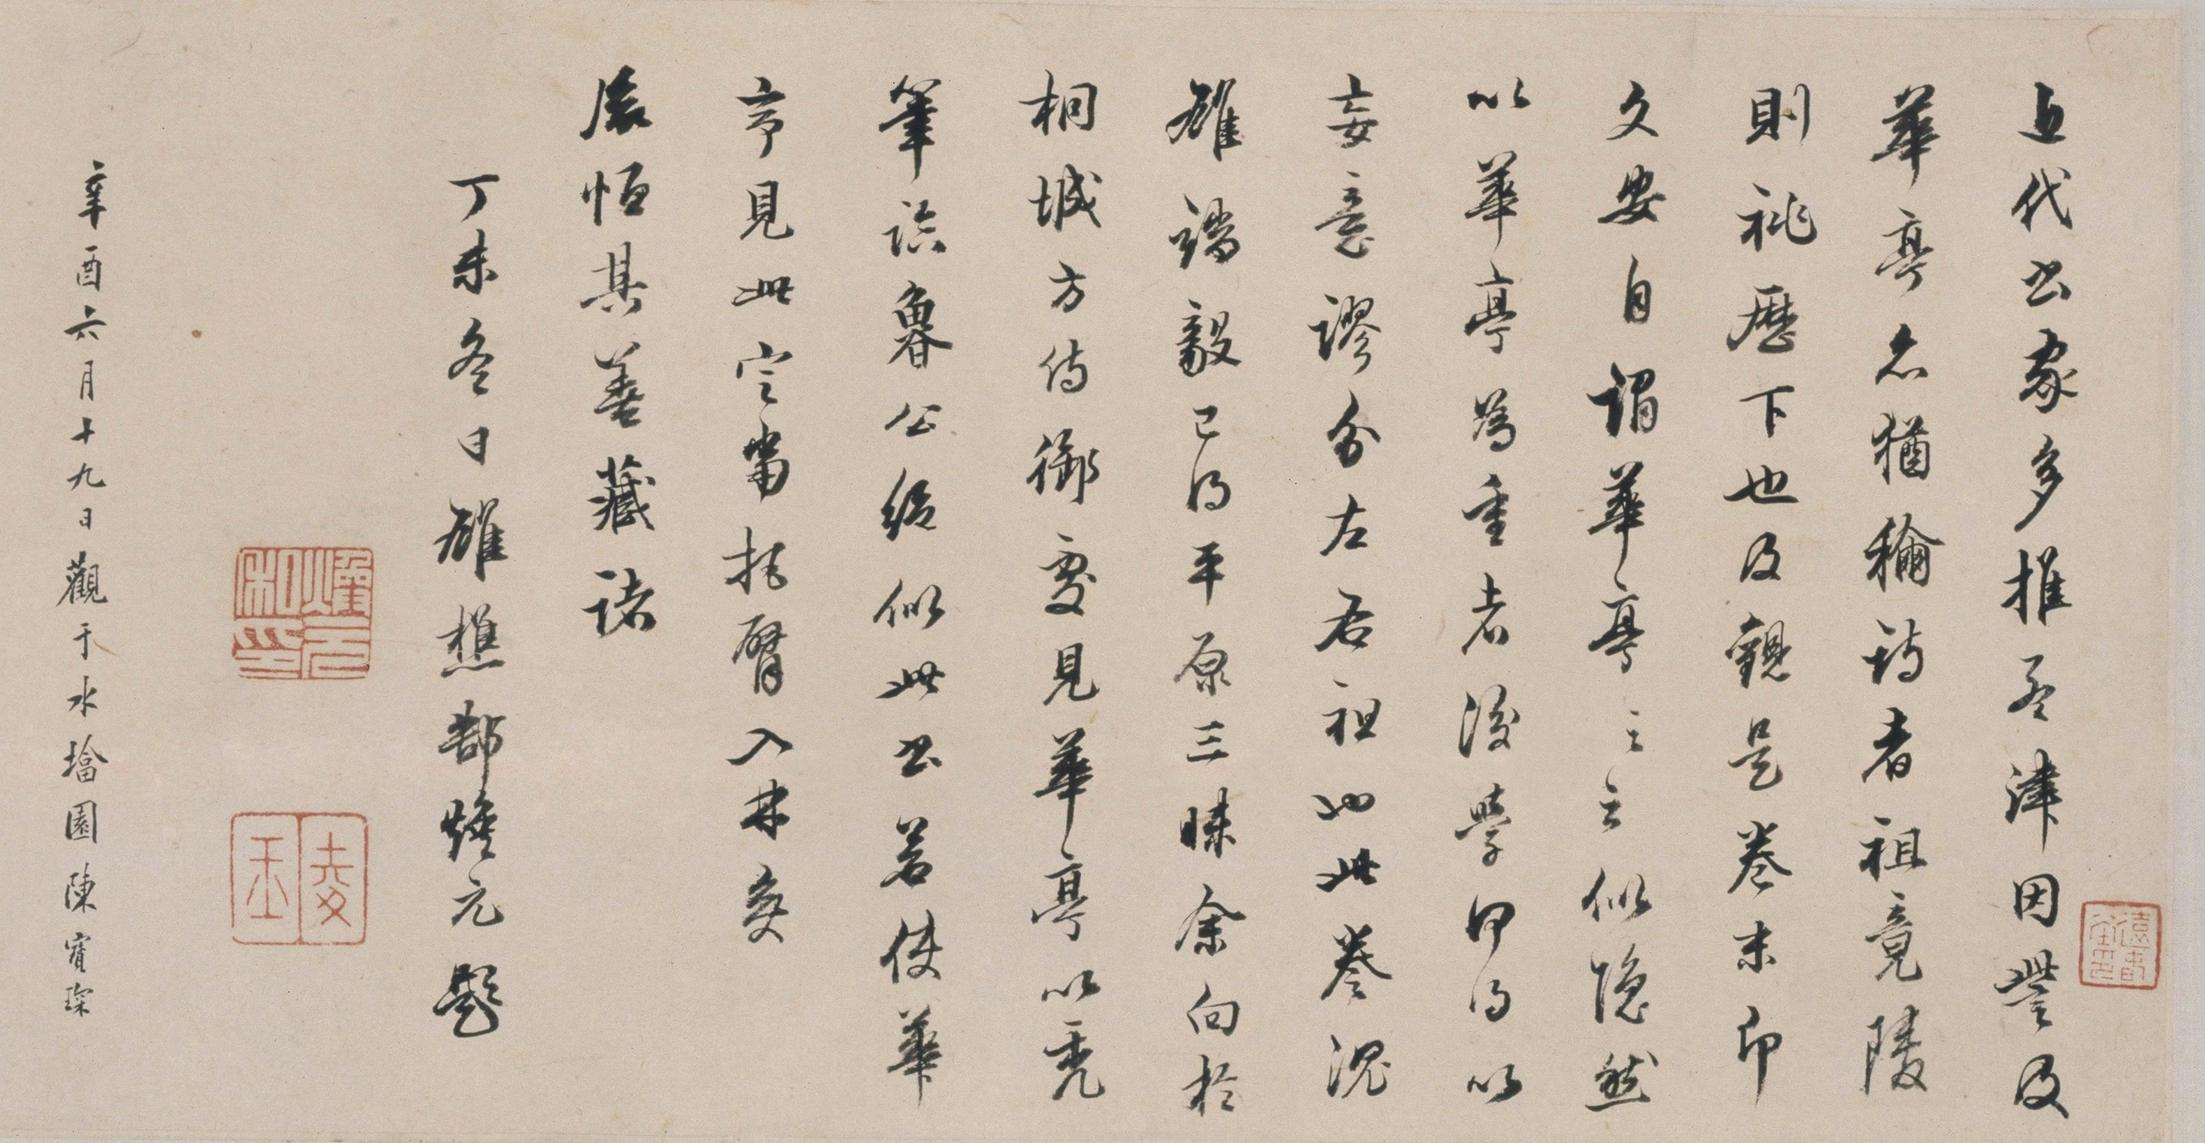 近代書家多推孟津因詈及
華亭不猶稱詩者祖竟陵
則祧歷下也及觀是卷末印
文安自謂華亭之立似隱然
以華亭為重者後學毋得以
妄意謬分左右祖也此卷渾
雄端毅已得平原三昧余向於
桐城方侍御處見華亭以禿
筆臨魯公絕似此書若使華
亭見此定當把臂入林矣
展恒其善藏諸
丁未冬日雄樵郜煥元題
辛酉六月十九日觀于水墖園陳寶琛